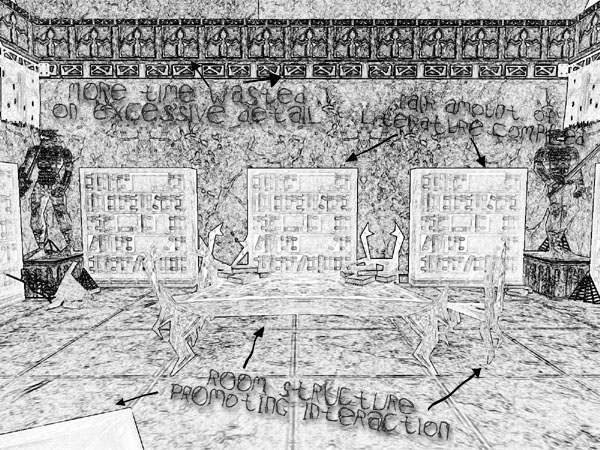 MORE time wasted
on excessive detail
Fair amount of
Literature compiled
ROOM structure
PROMOTING INTERACTION